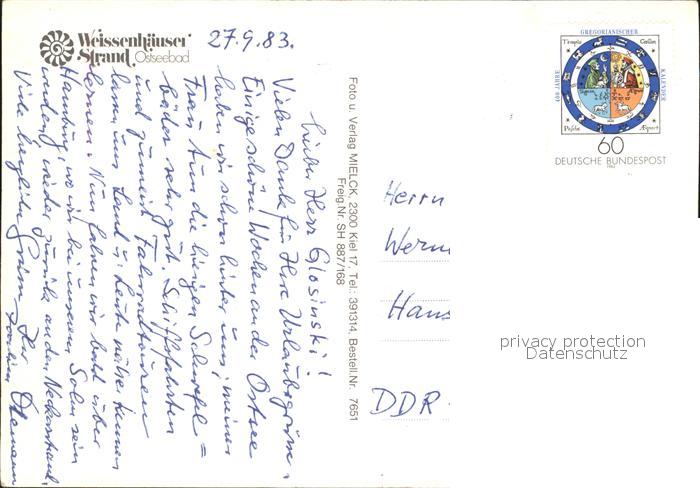 Weissenhäuser
Strand Ostseebad
27.9.83.
Lieber Herr Glosinski!
Vielen Dank für Ihre Urlaubsgrüße.
Einige schöne Wochen an der Ostsee
haben wir schon hinter uns, meiner
Frau tun die hiesigen Schwefel=
bäder sehr gut. Schiffsfahrten
und zumeist Fahrradtouren
lassen uns Land u. Leute näher kennen
lernen. Nun fahren wir bald über
Hamburg, wo wir bei unserem Sohn sein
werden, wieder zurück an den Neckarstrand.
Viele herzliche Grüße Ihr
Joachim
Foto u. Verlag MIELCK, 2300 Kiel 17, Tel.: 391314, Bestell.Nr. 7651
Freig.Nr. SH 887/168
GREGORIANISCHER
KALENDER
400 JAHRE
60
DEUTSCHE BUNDESPOST
1982
Herrn
Wern
Hans
DDR
privacy protection
Datenschutz